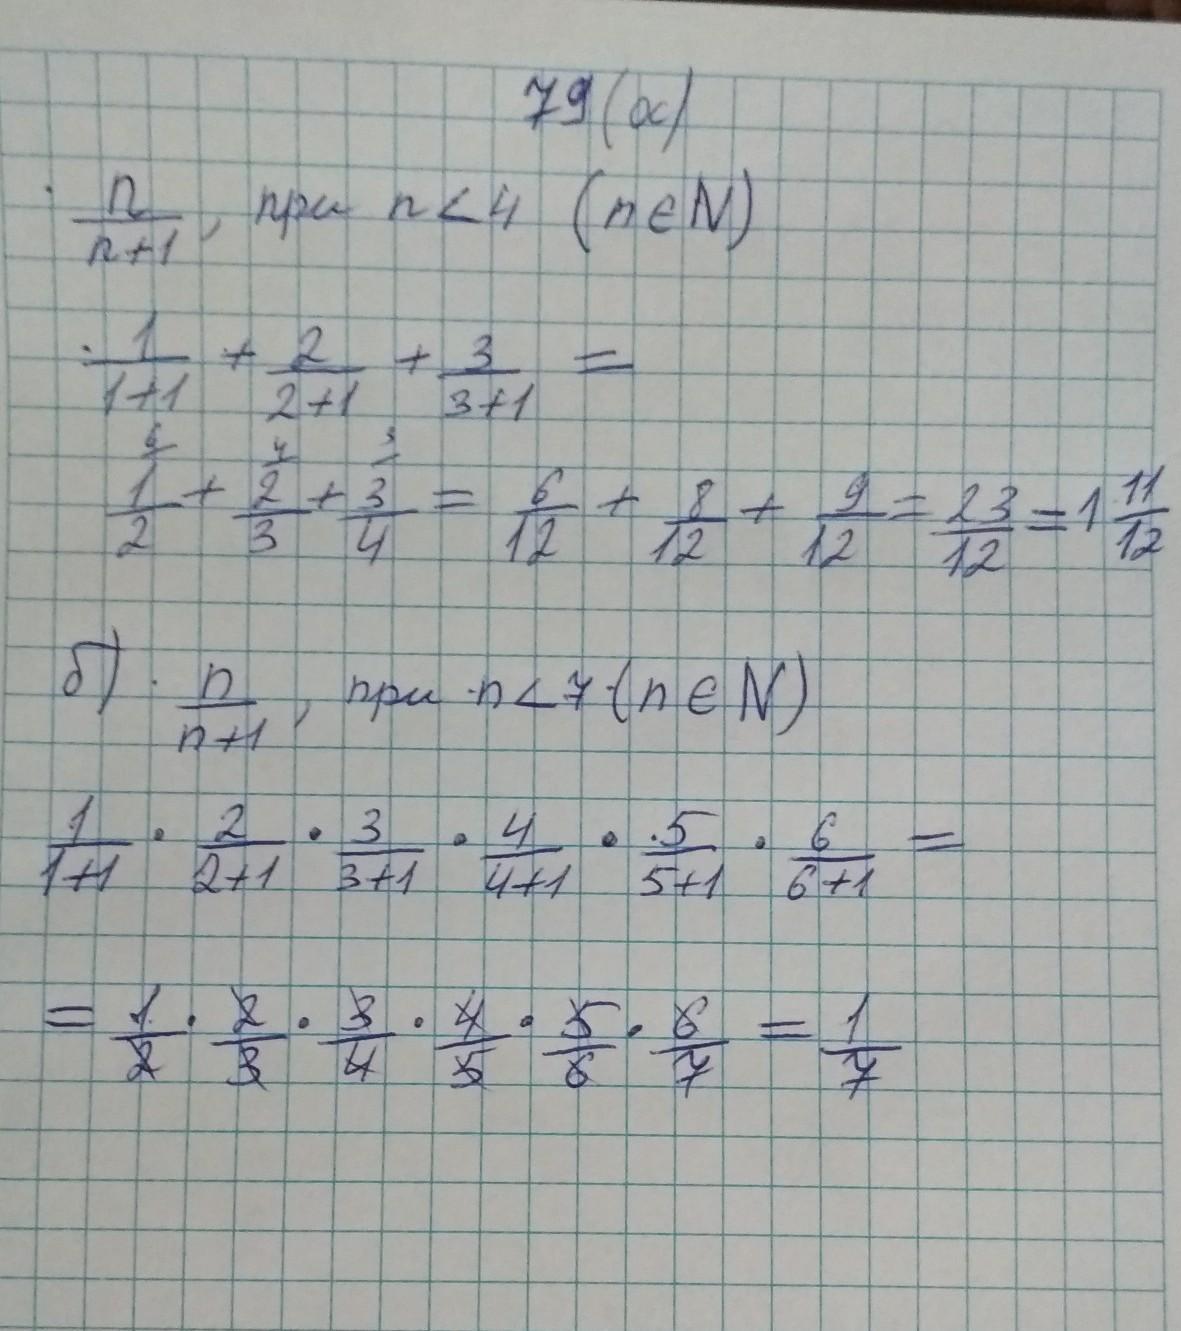 79(а)
n/(n+1), при n<4 (n∈N)
1/(1+1) + 2/(2+1) + 3/(3+1) =
6 4 3
1/2 + 2/3 + 3/4 = 6/12 + 8/12 + 9/12 = 23/12 = 1 11/12
б) n/(n+1), при n<7 (n∈N)
1/(1+1) · 2/(2+1) · 3/(3+1) · 4/(4+1) · 5/(5+1) · 6/(6+1) =
= 1/2 · 2/3 · 3/4 · 4/5 · 5/6 · 6/7 = 1/7